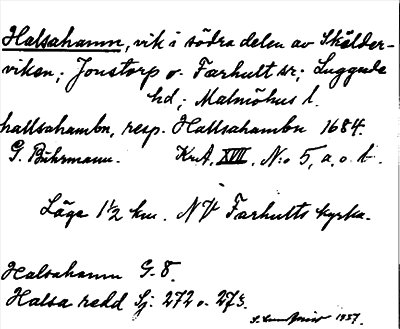 Halsahamn, vik i södra delen av Skälder-
viken; Jonstorp o. Farhult sr; Luggude
hd; Malmöhus l.
hallsahambn, resp. Hallsahambn 1684.
G. Buhrmann. KrA, XVII, N:o 5, a, o. b.
Läge 1½ km. NV Farhults kyrka.
Halsahamn G. 8.
Halsa redd Sj. 272 o. 273.
S. 1937.